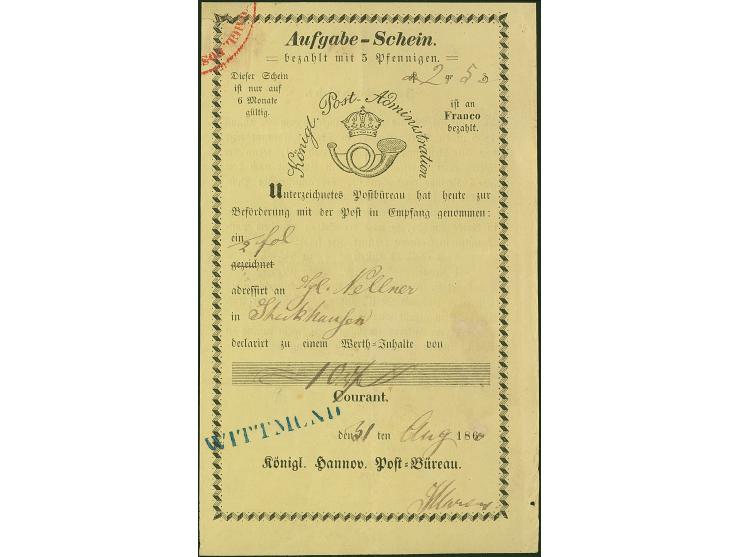 Aufgabe-Schein.
bezahlt mit 5 Pfennigen.
Dieser Schein
ist nur auf
6 Monate
gültig.
2 gr 5
ist an
Franco
bezahlt.
Königl. Post-Administration
Unterzeichnetes Postbüreau hat heute zur
Beförderung mit der Post in Empfang genommen:
ein fol
gezeichnet
adressirt an Nellner
in Stickhausen
declarirt zu einem Werth-Inhalte von
10
Courant.
WITTMUND
den 31 ten Aug 186
Königl. Hannov. Post-Büreau.